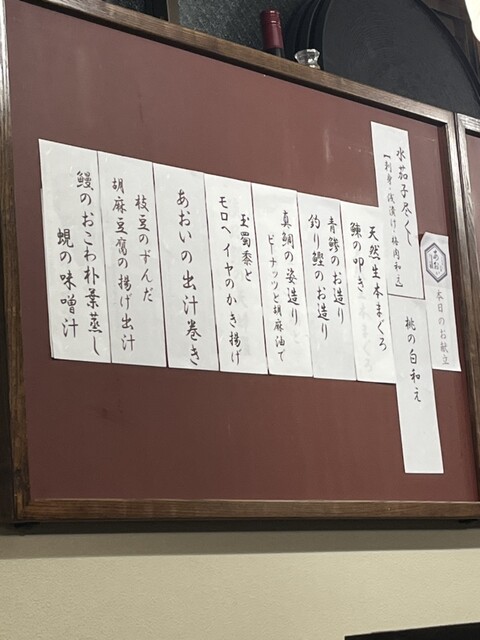 あおい
本日のお献立
水茄子尽くし
【刺身・浅漬け・梅肉和え】
桃の白和え
天然生本まぐろ
鰊の叩き
青鯵のお造り
釣り鰹のお造り
真鯛の姿造り
ピーナッツと胡麻油で
玉蜀黍と
モロヘイヤのかき揚げ
あおいの出汁巻き
枝豆のずんだ
胡麻豆腐の揚げ出汁
鰻のおこわ朴葉蒸し
蜆の味噌汁